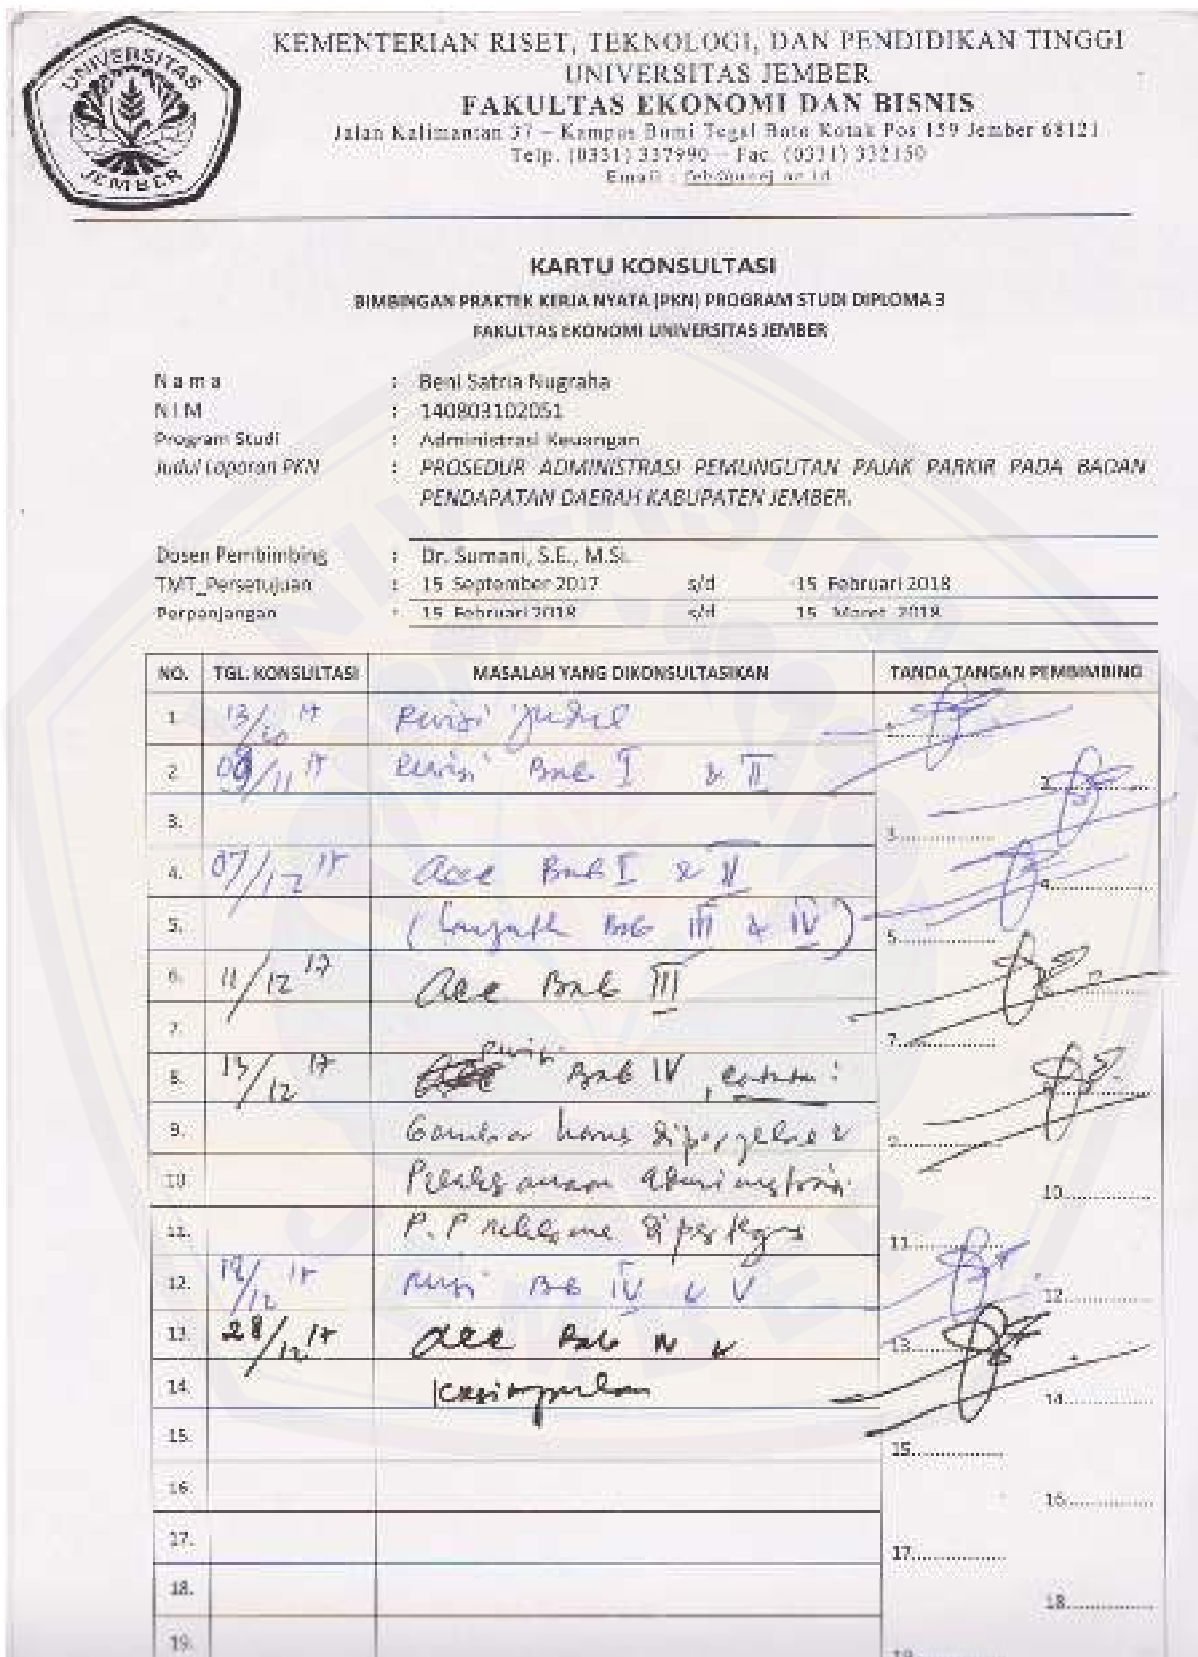 UNIVERSITAS
JEMBER
KEMENTERIAN RISET, TEKNOLOGI, DAN PENDIDIKAN TINGGI
UNIVERSITAS JEMBER
FAKULTAS EKONOMI DAN BISNIS
Jalan Kalimantan 37 – Kampus Bumi Tegal Boto Kotak Pos 159 Jember 68121
Telp. (0331) 337990 – Fac. (0331) 332150
Email : feb@unej.ac.id
KARTU KONSULTASI
BIMBINGAN PRAKTEK KERJA NYATA (PKN) PROGRAM STUDI DIPLOMA 3
FAKULTAS EKONOMI UNIVERSITAS JEMBER
N a m a : Beni Satria Nugraha
N I M : 140803102051
Program Studi : Administrasi Keuangan
Judul Laporan PKN : PROSEDUR ADMINISTRASI PEMUNGUTAN PAJAK PARKIR PADA BADAN
PENDAPATAN DAERAH KABUPATEN JEMBER.
Dosen Pembimbing : Dr. Sumani, S.E., M.Si.
TMT_Persetujuan : 15 September 2017 s/d 15 Februari 2018
Perpanjangan : 15 Februari 2018 s/d 15 Maret 2018
NO. TGL. KONSULTASI MASALAH YANG DIKONSULTASIKAN TANDA TANGAN PEMBIMBING
1. 13/10 17 Revisi Judul 1.
2. 09/11 17 Revisi Bab I & II 2.
3. 3.
4. 07/12 17 Acc Bab I & II 4.
5. (Lanjutk Bab III & IV) 5.
6. 11/12 17 Acc Bab III
7. 7.
8. 13/12 17 Revisi Bab IV
9. Gambar harus diperjelas & 9.
10. 10.
11. dipertegas 11.
12. 12 17 Revisi Bab IV & V 12.
13. 28/12 17 Acc Bab IV & 13.
14. Kesimpulan 14.
15. 15.
16. 16.
17. 17.
18. 18.
19. 19.